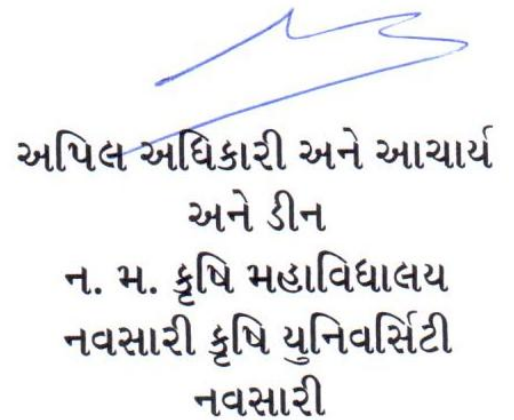 અપિલ અધિકારી અને આચાર્ય
અને ડીન
ન. મ. કૃષિ મહાવિધાલય
નવસારી કૃષિ યુનિવર્સિટી
નવસારી